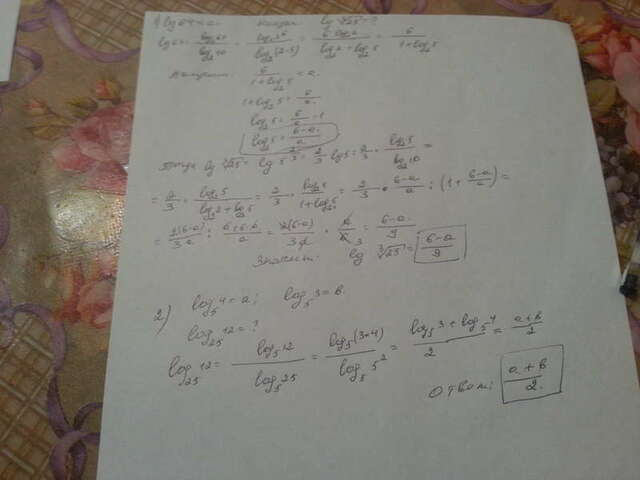 1) lg 64 = a. Найти lg ∛25 = ?
lg 64 = log₂64 / log₂10 = log₂2⁶ / log₂(2·5) = 6·log₂2 / (log₂2 + log₂5) = 6 / (1+log₂5)
6 / (1+log₂5) = a.
1+log₂5 = 6/a
log₂5 = 6/a - 1
log₂5 = (6-a)/a
Тогда lg ∛25 = lg 5^(2/3) = 2/3 lg 5 = 2/3 · log₂5 / log₂10 =
= 2/3 · log₂5 / (log₂2 + log₂5) = 2/3 · log₂5 / (1+log₂5) = 2/3 · (6-a)/a : (1 + (6-a)/a) =
= 2(6-a)/3a : (a+6-a)/a = 2(6-a)/3a · a/6 = (6-a)/9
Значит: lg ∛25 = (6-a)/9
2) log₅4 = a; log₅3 = b.
log₂₅12 = ?
log₂₅12 = log₅12 / log₅25 = log₅(3·4) / log₅5² = (log₅3 + log₅4) / 2 = (a+b)/2
Ответ: (a+b)/2.